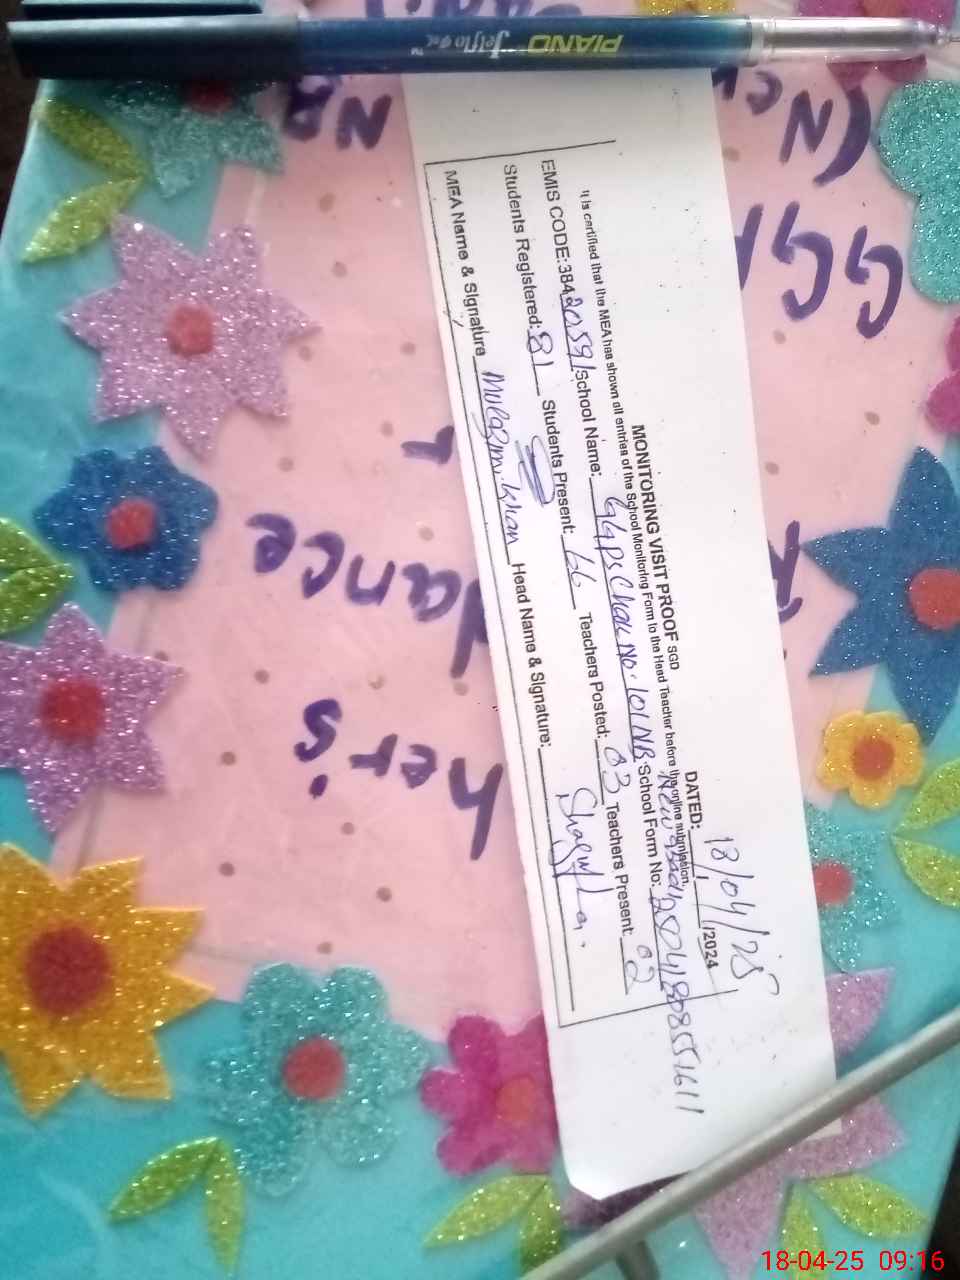 PIANO Jelflo
MONITORING VISIT PROOF SGD
DATED: 18/04/25 /2024
It is certified that the MEA has shown all entries of the School Monitoring Form to the Head Teacher before the online submission.
EMIS CODE: 384 School Name: GGPS Chak No. 101 NB School Form No:
Students Registered: 81 Students Present: 66 Teachers Posted: 03 Teachers Present: 02
MEA Name & Signature Mulazim Khan Head Name & Signature: Shagufta.
NB
dance
her's
18-04-25 09:16